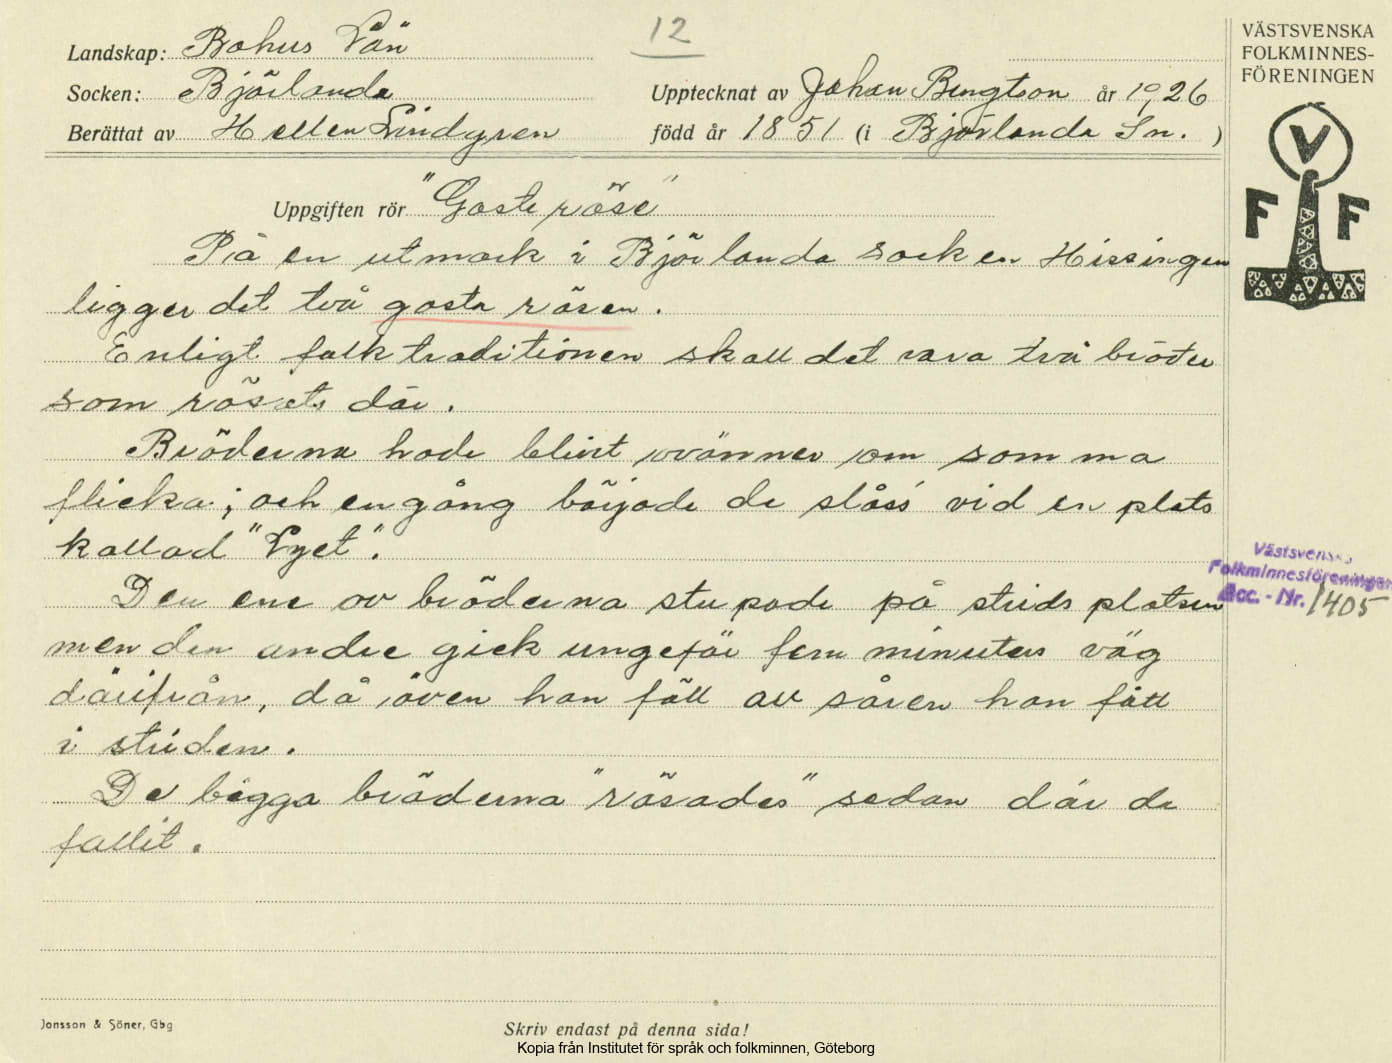 12
Landskap: Bohus Län
Socken: Björlanda
Upptecknat av Johan Bengtson år 1926
Berättat av Hellen Lindgren född år 1851 (i Björlanda Sn. )
Uppgiften rör "Gasta röse"
På en utmark i Björlanda socken Hissingen
ligger det två gasta rösen.
Enligt folktraditionen skall det vara två bröder
som rösats där.
Bröderna hade blivit ovänner om samma
flicka; och en gång började de slåss vid en plats
kallad "Lyet".
Den ene av bröderna stupade på stridsplatsen
men den andre gick ungefär fem minuters väg
därifrån, då även han föll av såren han fått
i striden.
De bägge bröderna "rösades" sedan där de
fallit.
Jonsson & Söner, Gbg
Skriv endast på denna sida!
Kopia från Institutet för språk och folkminnen, Göteborg
VÄSTSVENSKA
FOLKMINNES-
FÖRENINGEN
V
F F
Västsvenska
Folkminnesföreningen
Acc. - Nr. 1405